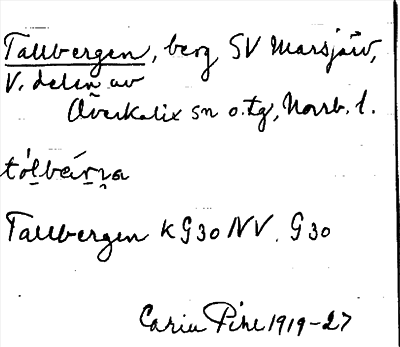 Tallbergen, berg SV Marsjärv,
V. delen av
Överkalix sn o. tg, Norrb. l.
tólbérṇa
Tallbergen K G30 NV. G30
Carin Pihl 1919-27